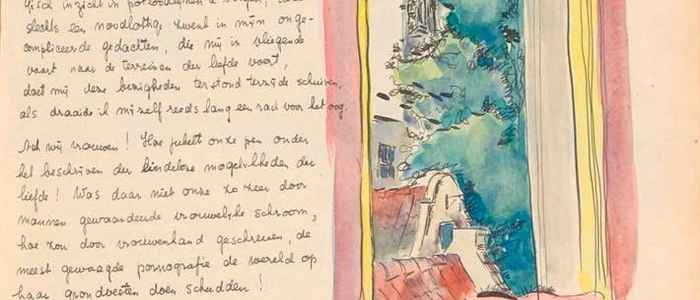 gisch inzicht in
slechts een noodlottig moment in mijn onge-
compliceerde gedachten, die mij in vliegende
vaart naar de terreinen der liefde voert,
doet mij deze bezigheden terstond terzijde schuiven,
als draaide ik mijzelf reeds lang een rad voor het oog.
Ach wij vrouwen! Hoe jubelt onze pen onder
het beschrijven der eindeloze mogelijkheden der
liefde! Was daar niet onze zo zeer door
mannen gewaardeerde vrouwelijke schroom,
hoe zou door vrouwenhand geschreven, de
meest gewaagde pornografie de wereld op
haar grondvesten doen schudden!